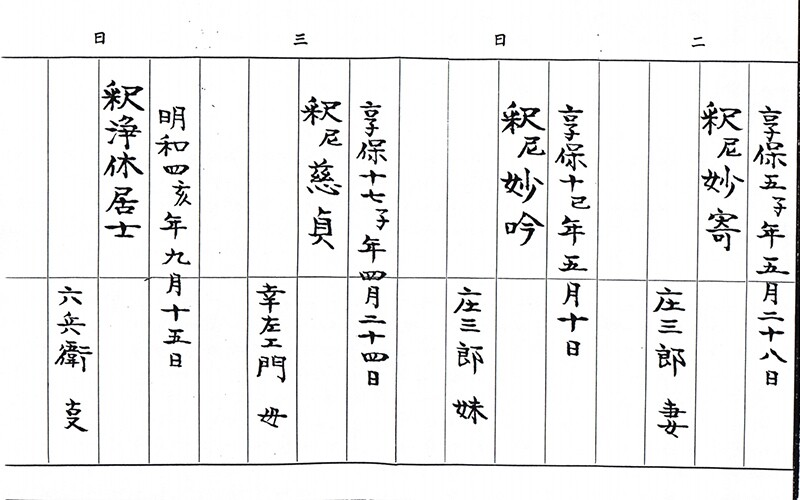 二
日
三
日
享保五子年五月二十八日
釈尼妙寄
庄三郎 妻
享保十巳年五月十日
釈尼妙吟
庄三郎 妹
享保十七子年四月二十四日
釈尼慈貞
幸左エ門 母
明和四亥年九月十五日
釈浄休居士
六兵衛 㕝